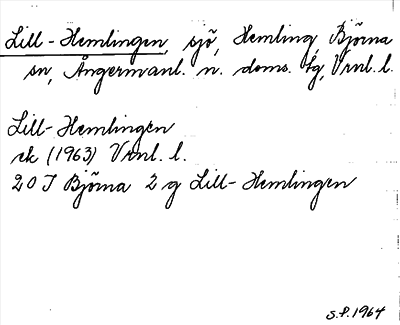 Lill-Hemlingen, sjö, Hemling, Björna
sn, Ångermanl. n. doms. tg, Vrnl. l.
Lill-Hemlingen
ek (1963) Vrnl. l.
20 J Björna 2 g Lill-Hemlingen
S.P. 1964